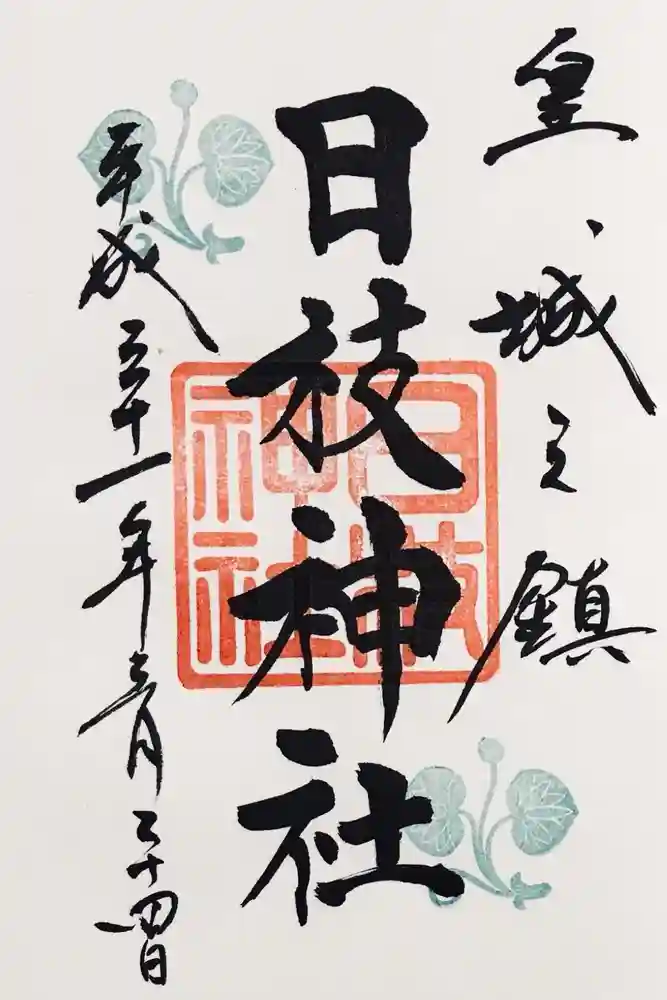 皇城之鎮
日枝神社
平成三十一年三月二十四日
日枝
神社